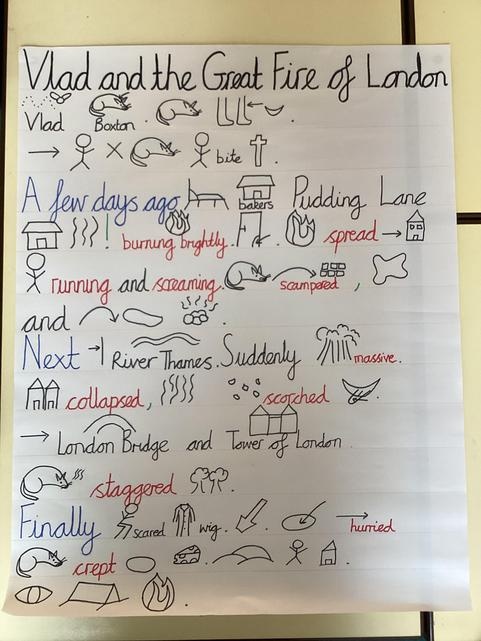 Vlad and the Great Fire of London
Vlad Boxton .
bite .
A few days ago, bakers Pudding Lane
! burning brightly. spread
running and screaming. scampered ,
and .
Next River Thames. Suddenly massive.
collapsed, scorched .
London Bridge and Tower of London .
staggered .
Finally scared wig. hurried
crept .
.